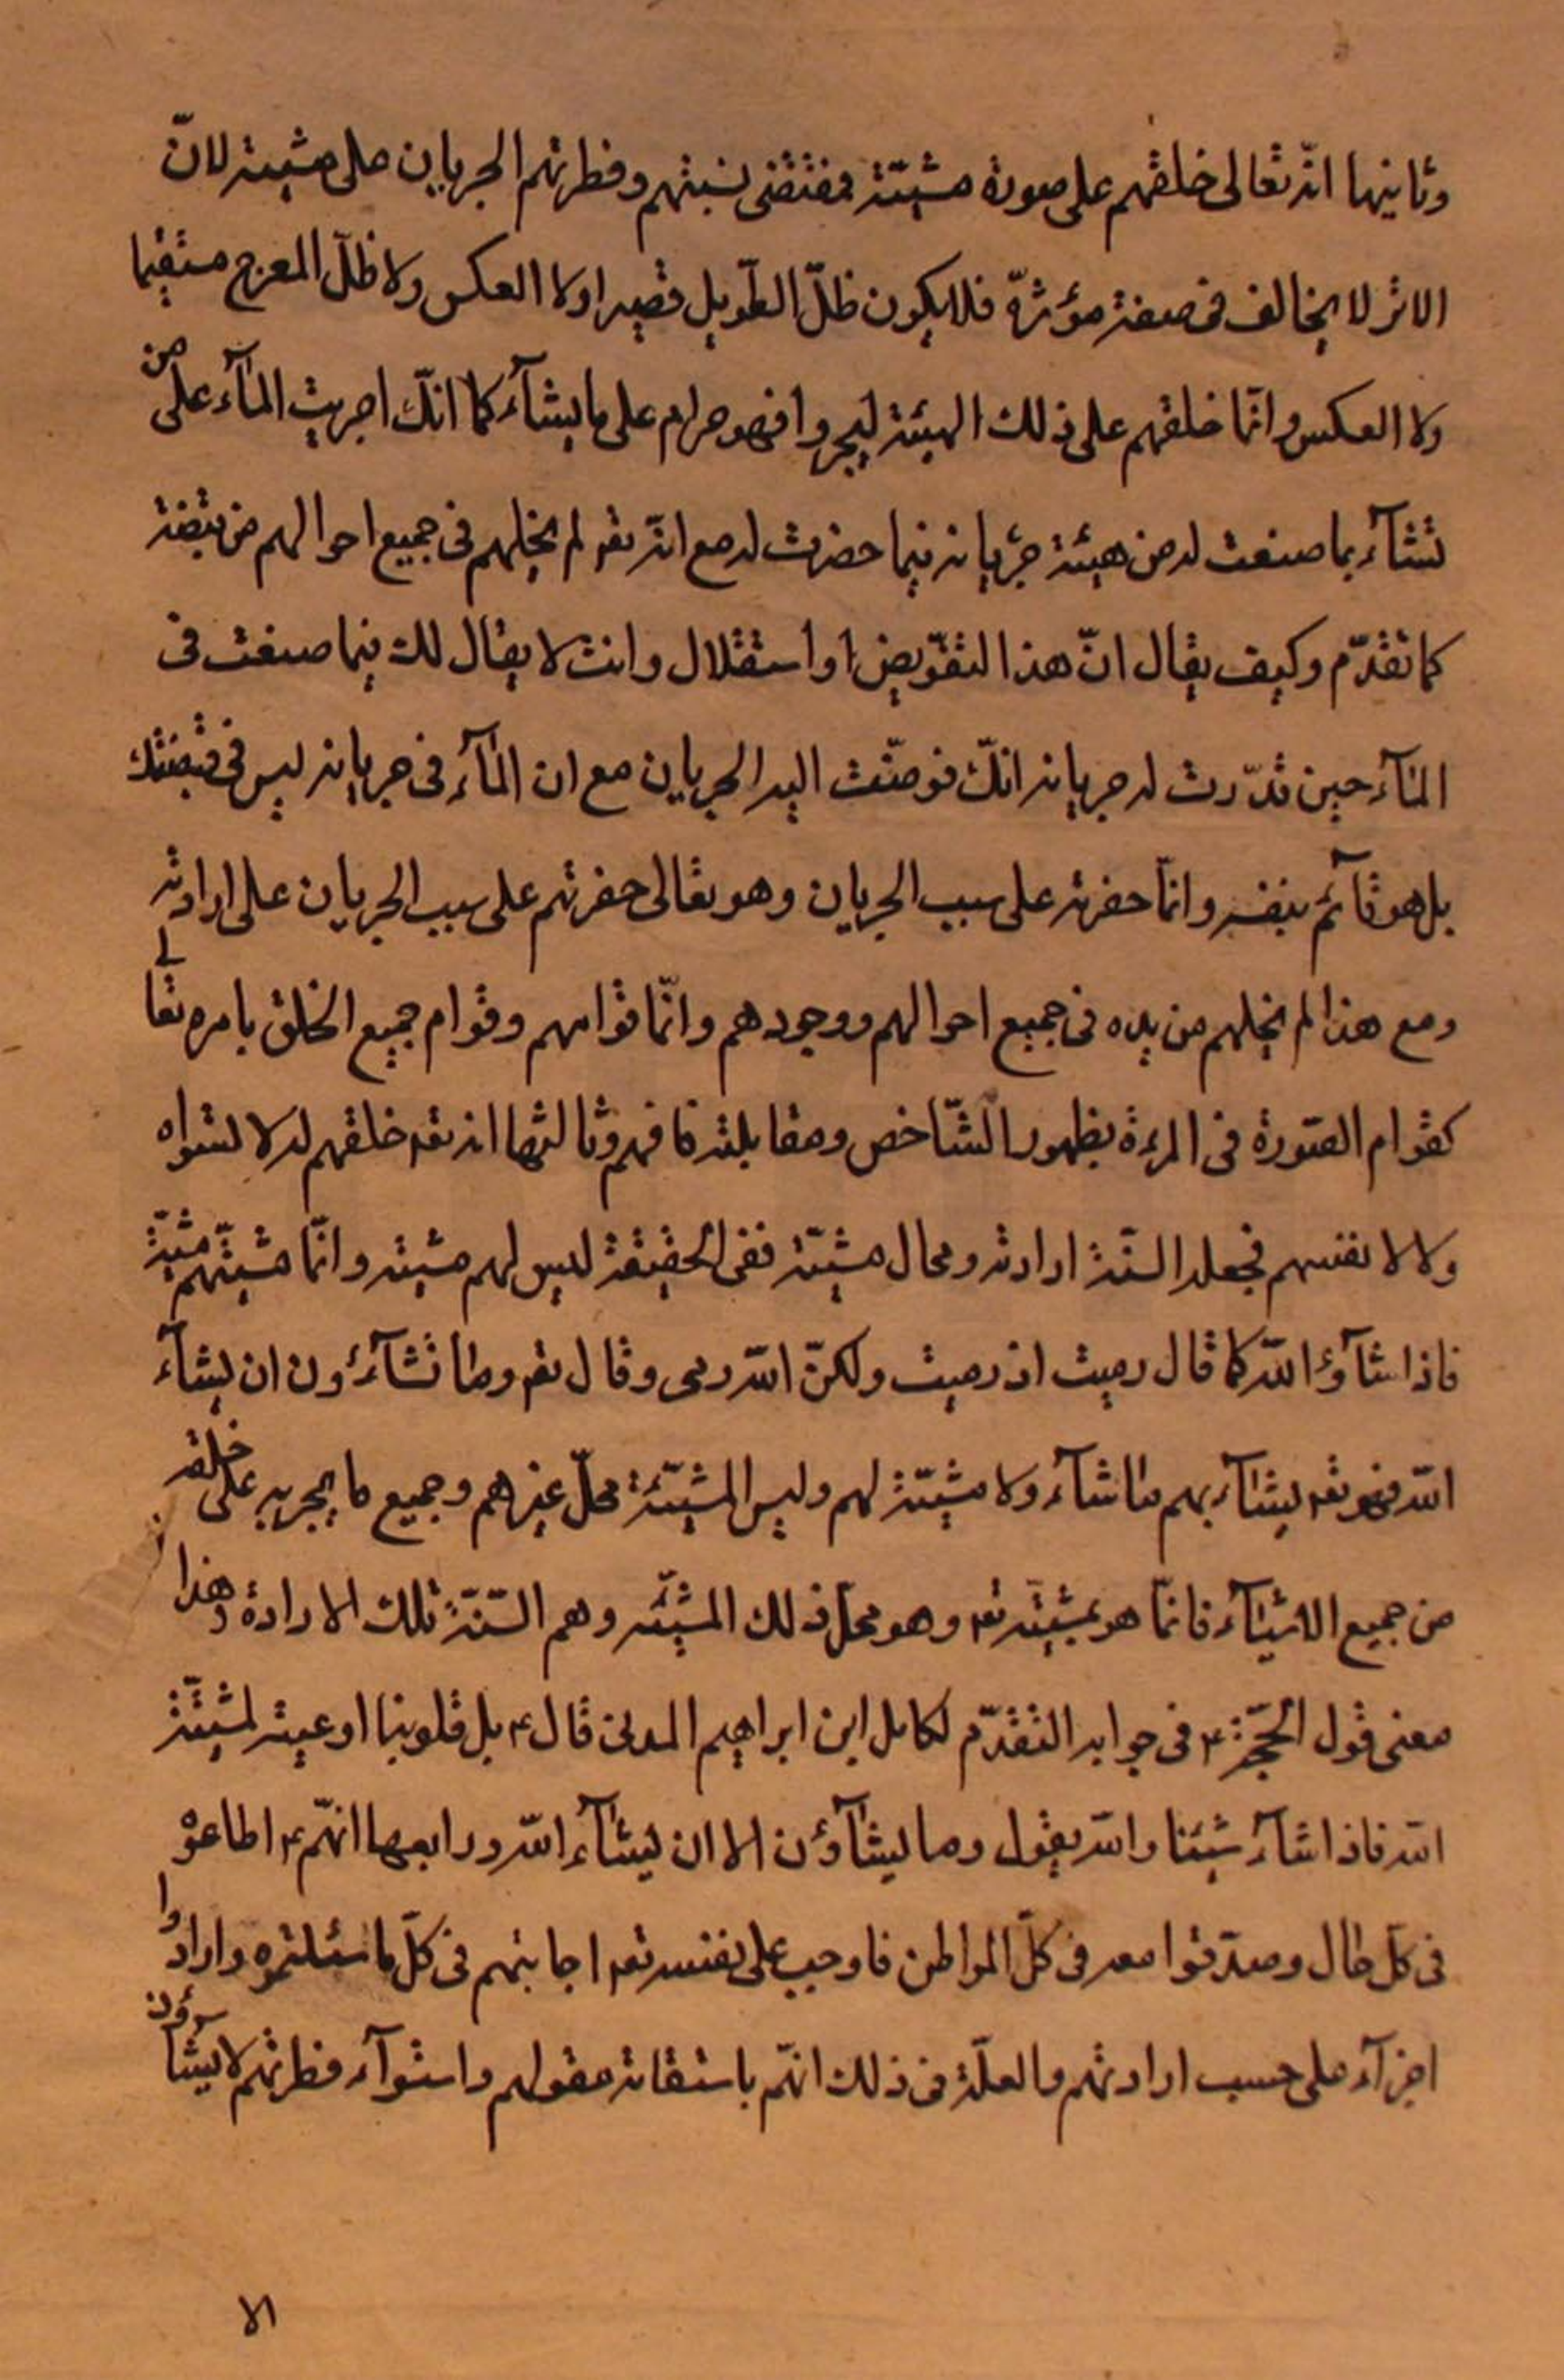 وثانيها انّه تعالى خلقهم على صورة مشيّته فمقتضى نسبتهم وفطرتهم الجريان على مشيته لانّ
الاثر لا يخالف فى صفته مؤثرهّ فلا يكون ظلّ الطّويل قصيرا ولا العكس ولا ظلّ المعوج مستقيما
ولا العكس وانّما خلقهم على ذلك الهيئة ليجروا فهو جرام على ما يشآء كما انّك اجريت المآء على من
تشآء بما صنعت له من هيئة جريانه فيما حضرت له مع انّه تعم لم يخلهم فى جميع احوالهم من قبضته
كما تقدّم وكيف يقال انّ هذا التفّويض او استقلال وانت لا يقال لك فيما صنعت فى
المآء حين قدّرت له جريانه انّك فوضّت اليه الجريان مع ان المآء فى جريانه ليس فى قبضتك
بل هو قآئم بنفسه وانّما حفرته على سبب الجريان وهو تعالى حفرتهم على سبب الجريان على ارادته
ومع هذا لم يخلهم من يده فى جميع احوالهم ووجودهم وانّما قوامهم وقوام جميع الخلق بامره تعالى
كقوام الصّورة فى المرءة بظهور الشّاخص ومقابلته فافهم وثالثها انه تعم خلقهم له لا لسواه
ولا لانفسهم فجعله السنّة ارادته ومحال مشيّته ففى الحقيقة ليس لهم مشيته وانّما مشيّتهم مشيّته
فاذا شآؤا اللّه كما قال رميت اذ رميت ولكنّ اللّه رمى وقال تعم وما تشآءون ان يشآء
اللّه فهو تعم يشآء بهم ما شآء ولا مشيّة لهم وليس المشيّئة محلّ غيرهم وجميع ما يجريه على خلقه
من جميع الاشيآء فانّما هو بمشيّته تعم وهو محلّ ذلك المشيّئه وهم السّنّة تلك الارادة وهذا
معنى قول الحجّة ع فى جوابه التقدّم لكامل ابن ابراهيم المدنى قال ع بل قلوبنا اوعيته لمشيّته
اللّه فاذا شآء شيئنا واللّه يقول وما يشآؤن الا ان يشآء اللّه ورابعها انهّم ع اطاعوه
فى كلّ حال وصدّقوا معه فى كلّ المواطن فاوجب على نفسه تعم اجابتهم فى كلّ ما سئلتموه وارادوا
اجزآء على حسب ارادتهم والعلّة فى ذلك انهّم باستقامة عقولهم واستوآء فطرتهم لا يشآؤن
الا